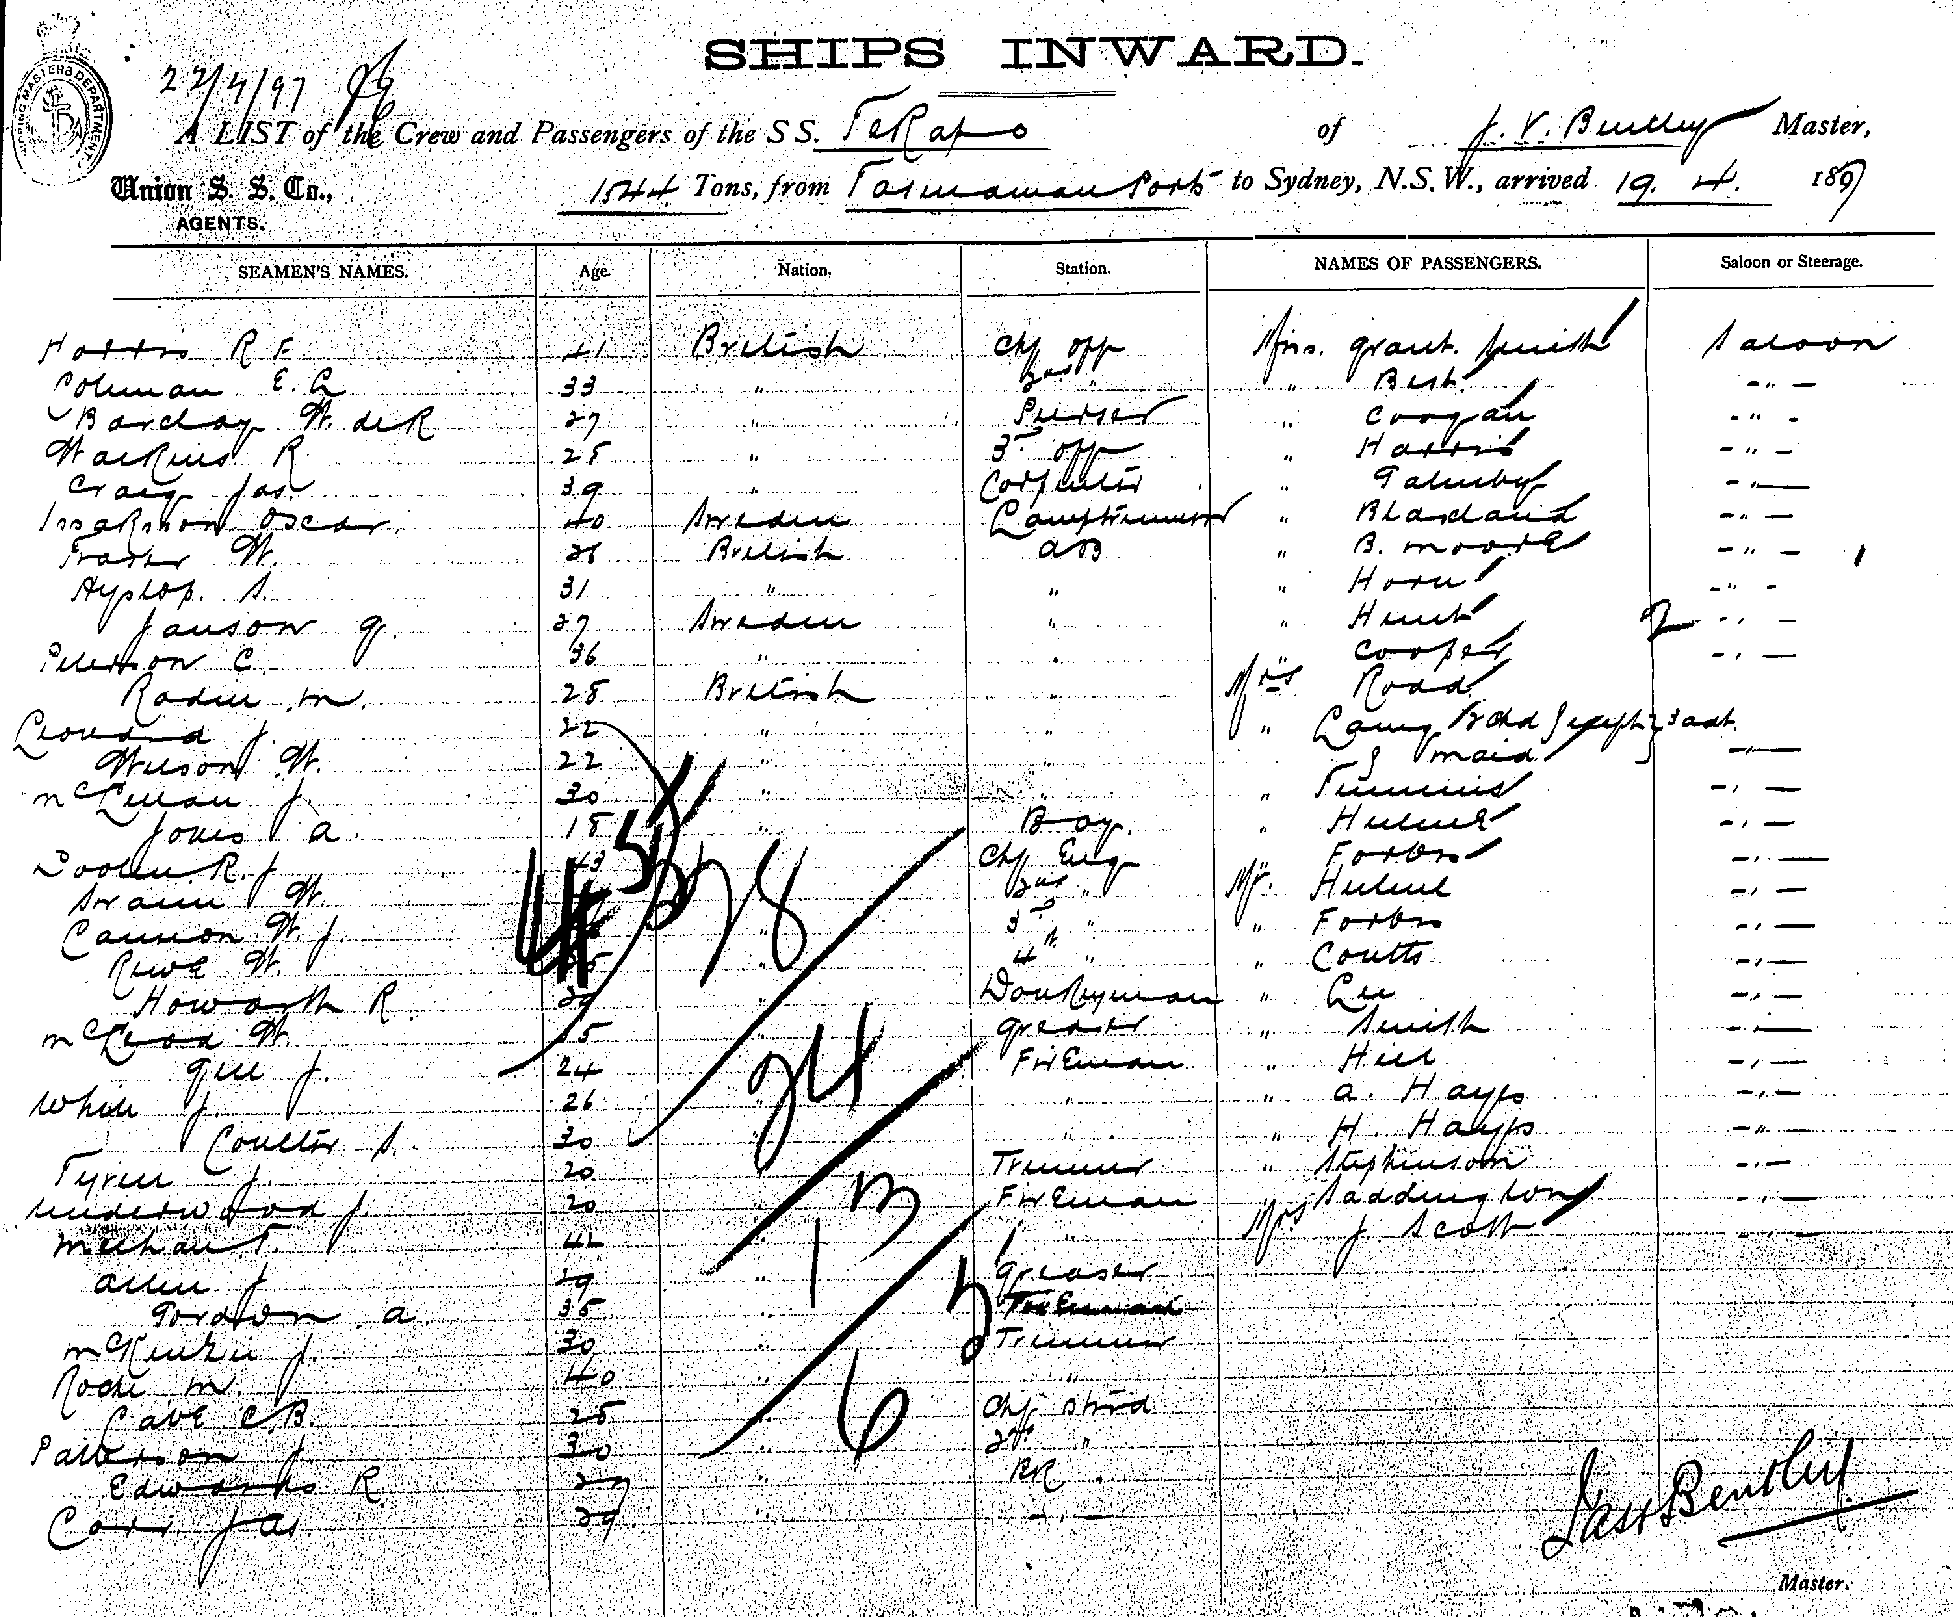 SHIPS INWARD.
22/4/97
SHIPPING MASTERS DEPARTMENT
A LIST of the Crew and Passengers of the S S. TeKapo of J. V. Bentley Master,
Union S. S. Co., AGENTS. 1544 Tons, from Tasmanian Ports to Sydney, N.S.W., arrived 19. 4. 1897
SEAMEN'S NAMES. Age. Nation. Station. NAMES OF PASSENGERS. Saloon or Steerage.
Harris R F 41 British Chf Off Mrs. Grant. Smith Saloon
Coleman E. G 33 " 2nd " " Best -"-
Barclay W. de R 27 " Purser " Coogan -"-
Watkins R 28 " 3rd Off " Harris -"-
Craig Jas 39 " Carpenter " -"-
Issakson Oscar. 40 Sweden Lamptrimmer " Blaxland -"-
Fraser W. 28 British AB " B. Moore -"-
Hyslop. S. 31 " " " Horn -"-
Janson G. 27 Sweden " " Hunt 2 -"-
Peterson C 36 " " " Cooper -"-
Roden M. 28 British " Mrs Road
Leonard J. 22 " " " Laing 3 adt.
Wilson W. 22 " " & maid -"-
McLellan J 30 " " " Timmins -"-
Jones A. 18 " Boy. " Hulme -"-
Doolen R. J 43 " Chf Eng " Forbes -"-
Swann W. " 2nd " Mr. Hulme -"-
Cannon W. J. " 3rd " " Forbes -"-
Rowe W. " 4th " " Coutts -"-
Howarth R. 29 " Donkeyman " Lee -"-
McLeod W. 35 " Greaser " Smith -"-
Gill J. 24 Fireman " Hill -"-
White J. 26 " " A. Hayes -"-
Coulter S. 30 " " " H. Hayes -"-
Tyrell J. 20 Trimmer " Stephenson -"-
Underwood J. 20 " Fireman Saddington -"-
Meehan T. 42 " Mrs J Scott -"-
Allen J 29 " Greaser
Gordon A. 35 " Fireman
McKenzie J. 30 " Trimmer
Roche M. 40 " "
Cave C. B. 25 " Chf Strd
Patterson J. 30 " 2nd "
Edwards R 29 " "
Carr Jas. 29 " -"-
78
24
13
6
Jas V Bentley
Master.